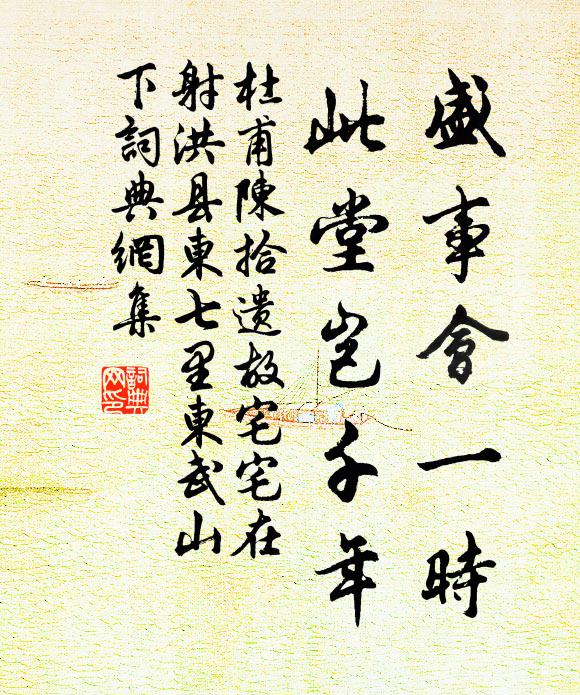 盛事會一時
此堂岂千年
杜甫陳拾遺故宅宅在
射洪县東七里東武山
下詞典網集
詞典
网印